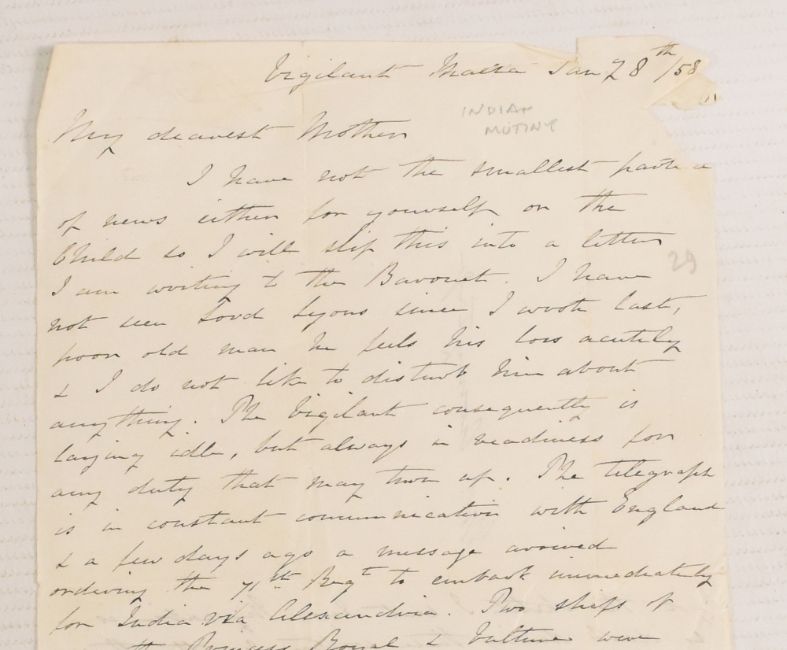 Vigilant Malta Jan 28th /58
INDIAN
MUTINY
My dearest Mother
I have not the smallest
of news either for yourself or the
Child so I will slip this into a letter
I am writing to the Baronet. I have
29
not seen Lord Lyons since I wrote last,
poor old man he feels his loss acutely
& I do not like to disturb him about
anything. The Vigilant consequently is
laying idle, but always in readiness for
any duty that may turn up. The telegraph
is in constant communication with England
& a few days ago a message arrived
ordering the 71th Regt to embark immediately
for India via Alexandria. Two ships of
the Princess Royal & Vulture were